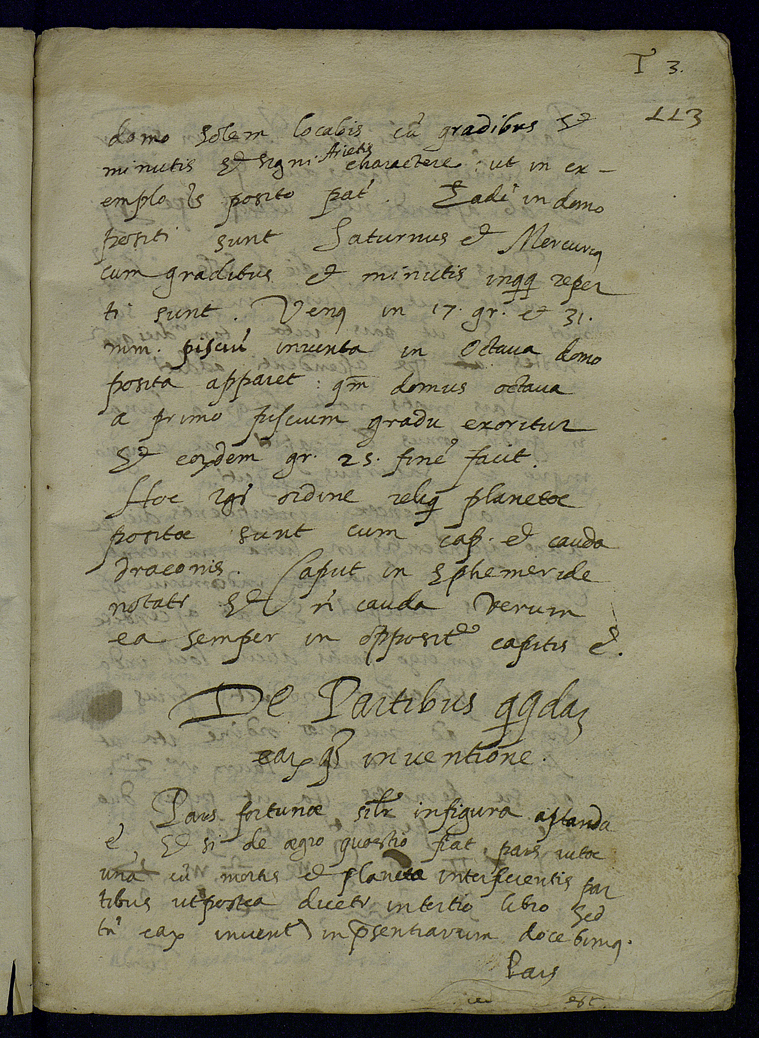 T 3.
113
domo Solem locabis cũ gradibus Et
minutis Et signi Arietis charactere: ut in ex-
emplo posito pat'. Eadẽ in domo
positi sunt Saturnus et Mercuriq
cum gradibus et minutis inqq reper
ti sunt. Venq in 17. gr. et 31.
min. pisciũ inventa in Octava domo
posita apparet: qm̃ domus octava
a primo piscium gradu exoritur
Et eorũdem gr. 25. finẽ facit.
Hoc igr̃ ordine reliq planetae
positae sunt cum cap. et cauda
draconis. Caput in Ephemeride
notatr Et ñ cauda verum
ea semper in opposit capitis ẽ.
De Partibus qqdaʒ
inventione.
Pars fortunae silr̃ in figura aptanda
ẽ, Et si de aegro quaestio fiat, pars vitae
una cũ mortis et planetae interficientis par
tibus ut postea dicetr in tertio libro sed
tñ invent in psentiarum docebimq.
Pars